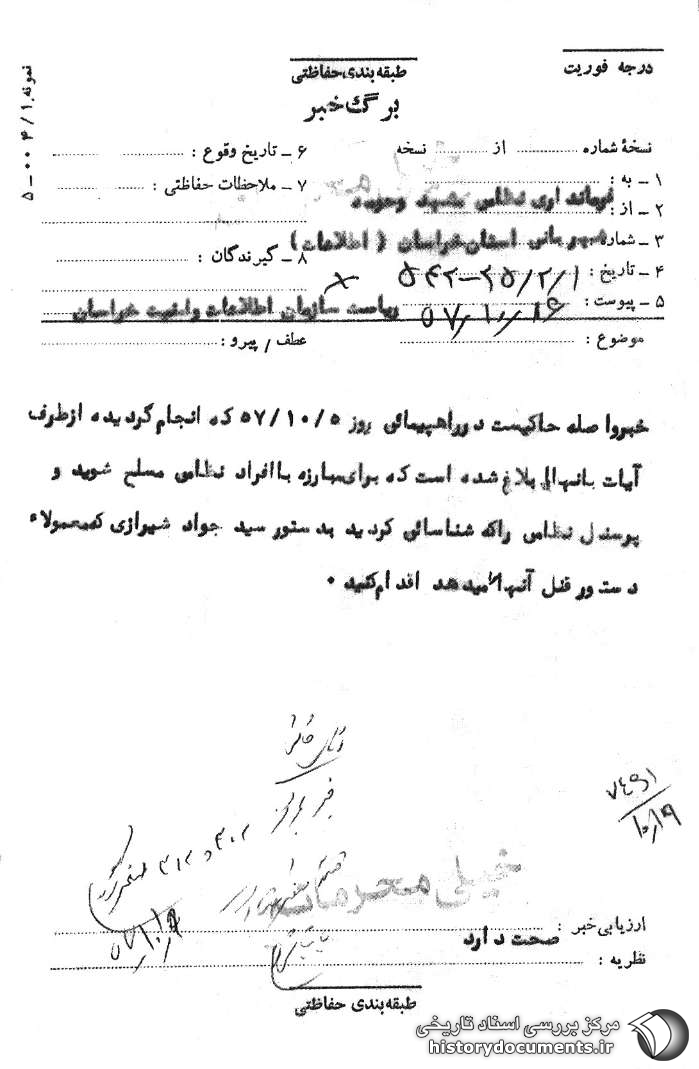 درجه فوریت
طبقه‌بندی حفاظتی
برگ خبر
نمونه ۱ / ۴ ۰۰ – ۵
نسخهٔ شماره ............ از ............ نسخه
۱ – به :
فرمانداری نظامی مشهد وحومه
۲ – از :
شهربانی استان خراسان ( اطلاعات )
۳ – شماره
۵۴۲–۲۵/۲/۱
۴ – تاریخ :
۵۷/۱۰/۱۶
۵ – پیوست :
۶ – تاریخ وقوع :
۷ – ملاحظات حفاظتی :
۸ – گیرندگان :
ریاست سازمان اطلاعات وامنیت خراسان
موضوع :
عطف / پیرو :
خبرواصله حاکیست درراهپیمائی روز ۵۷/۱۰/۵ که انجام گردیده ازطرف
آیات بانهاابلاغ شده است که برای مبارزه باافراد نظامی مسلح شوید و
پرسنل نظامی راکه شناسائی کردید بدستور سید جواد شیرازی که معمولاً
دستور قتل آنهارامیدهد اقدام کنید ۰
۷۴۹۱
۱۰/۱۹
خیلی محرمانه
ارزیابی خبر :
صحت دارد
نظریه :
طبقه‌بندی حفاظتی
مرکز بررسی اسناد تاریخی
historydocuments.ir